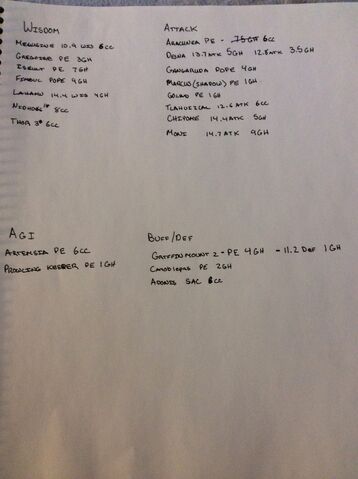 Wisdom
Melusine 10.9 wis 6cc
Gregoire PE 3GH
Iseult PE 7GH
Fimbul POPE 4GH
Lahamu 14.4 wis 4GH
8cc
Thor 3* 6cc
Attack
Arachnea PE - 6cc
Deina 13.7 ATK 5GH 12.8 ATK 3.5GH
Gangaruda POPE 4GH
Marcus (shadow) PE 1GH
PE 1GH
Tlahuizcal 12.6 ATK 6cc
Chipome 14.4 ATK 5GH
Moni 14.7 ATK 9GH
Agi
Artemisia PE 6cc
Prowling Keeper PE 1GH
Buff/Def
Griffin Mount 2 - PE 4GH - 11.2 Def 1GH
Canoblepas PE 2GH
Adonis SAC 8cc